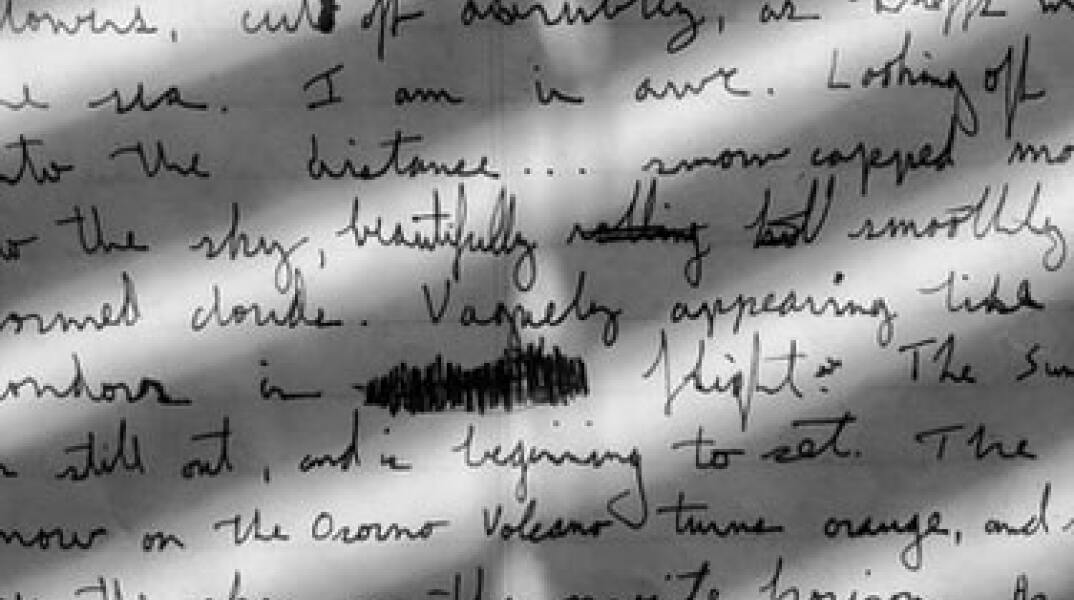 flowers, cut off assembly, as
sea. I am in awe. Looking off
into the distance... snow capped mo
the sky, beautifully rolling but smoothly
ormed clouds. Vaguely appearing like
ondors in flight. The Sun
still out, and is begining to set. The
now on the Osorno Volcano turns orange, and
the on the horizon. As